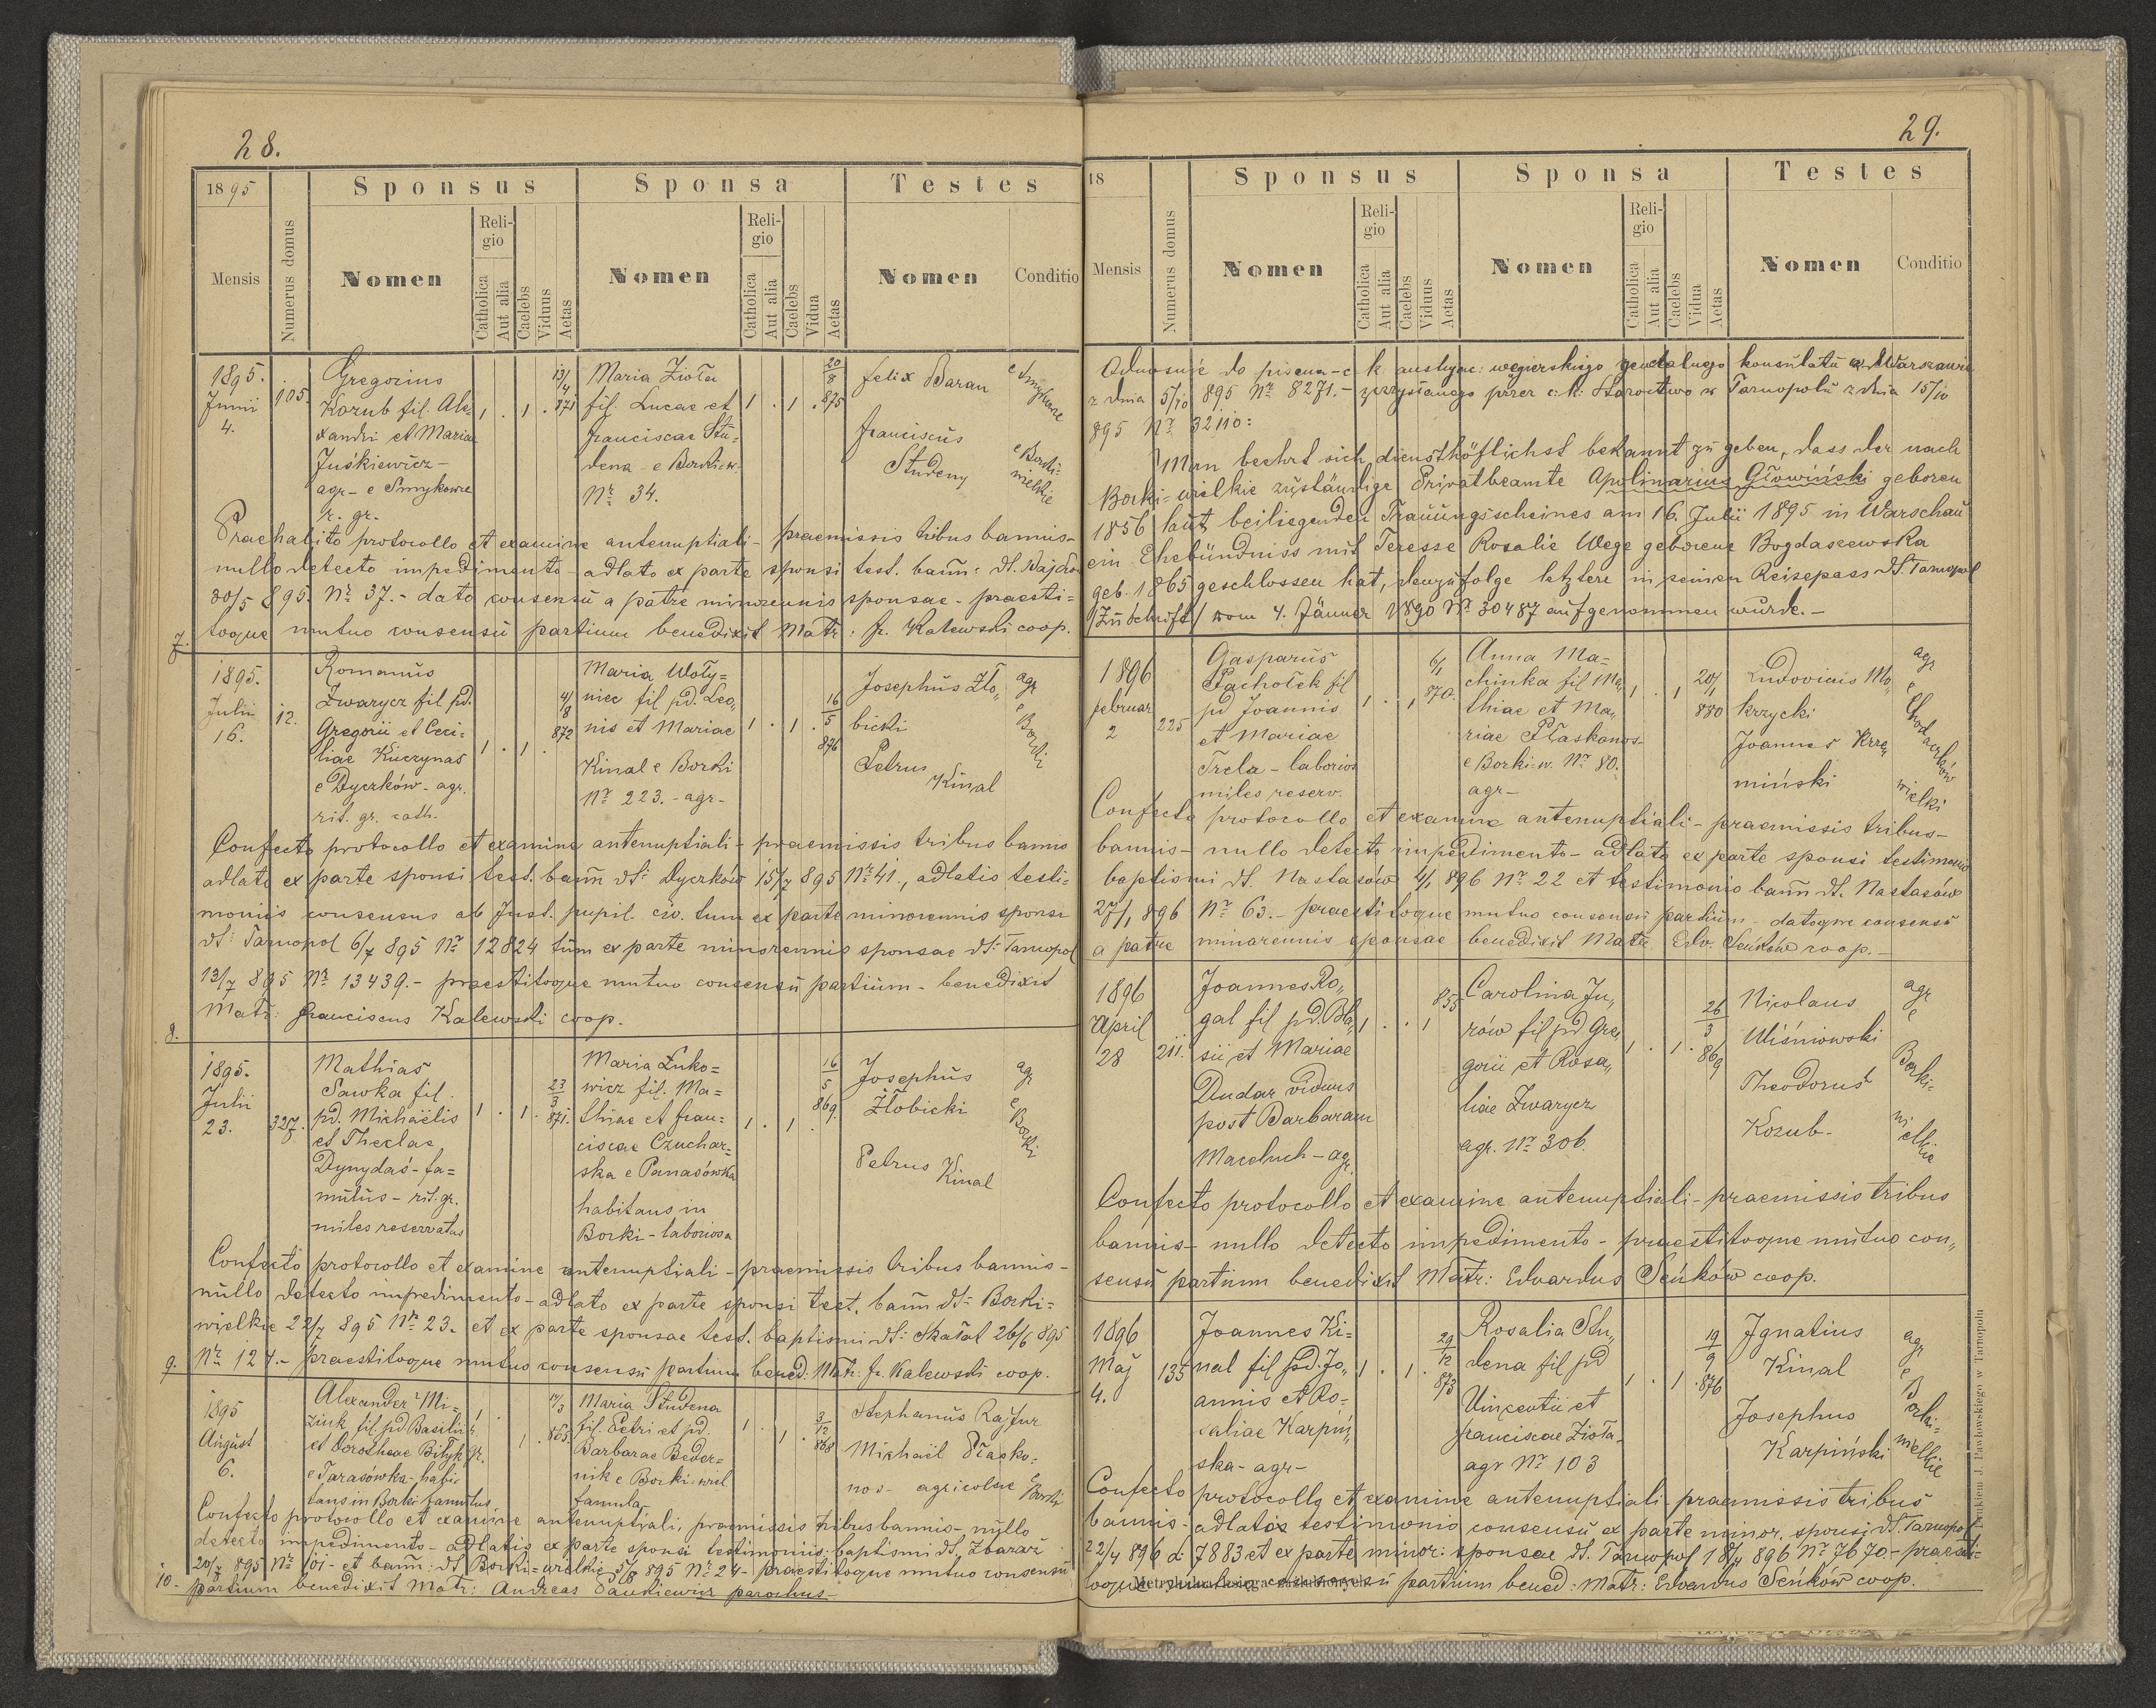 28.
1895 Sponsus Sponsa Testes
Mensis Numerus domus Nomen Religio Catholica Aut alia Caelebs Viduus Aetas Nomen Religio Catholica Aut alia Caelebs Vidua Aetas Nomen Conditio
1895. Junii 4.
105.
Gregorius
Kozub fil. Ale=
xandri et Mariae
Juśkiewicz -
agr - e Smykowce
r. gr.
1 . 1 . 13/4 871
Maria Zioła
fil. Lucae et
Franciscae Stu=
dena - e Borki w.
Nr 34.
1 . 1 . 20/8 875
Felix Baran
e Smykowce
Franciscus
Studeny
e Borki=
wielkie
Praehabito protocollo et examine antenuptiali - praemissis tribus bannis -
nullo detecto impedimento - adlato ex parte sponsi test. bann: dt.
30/5 895. Nr 37. - dato consensu a patre minorennis sponsae - praesti=
toque mutuo consensu partium benedixit Matr: fr. Kalewski coop.
7.
1895. Julii 16.
12.
Romanus
Zwarycz fil pd.
Gregorii et Ceci=
liae Kuczynas
e Dyczków - agr.
rit. gr. cath.
1 . 1 . 4/8 872
Maria Woły=
niec fil pd. Leo,,
nis et Mariae
Kinal e Borki
Nr 223. - agr -
1 . 1 . 16/5 876
Josephus Zło,,
bicki
Petrus
Kinal
agr e Borki
Confecto protocollo et examine antenuptiali - praemissis tribus bannis
adlato ex parte sponsi test. bann dt: Dyczków 15/7 895 Nr 41., adlatis testi=
moniis consensus ab Just. pupil. civ. tum ex parte minorennis sponsi
dt: Tarnopol 6/7 895 Nr 12824 tum ex parte minorennis sponsae dt: Tarnopol
13/7 895 Nr 13439. - praestitoque mutuo consensu partium - benedixit
Matr: Franciscus Kalewski coop.
8.
1895. Julii 23.
327.
Mathias
Sawka fil.
pd. Michaëlis
et Theclae
Dynydaś - fa=
mulus - rit. gr.
miles reservatus
1 . 1 . 23/3 871.
Maria Łuko=
wicz fil. Ma=
thiae et Fran=
ciscae Czuchar=
ska e Panasówka
habitans in
Borki - laboriosa
1 . 1 . 16/5 869.
Josephus
Złobicki
Petrus
Kinal
agr e Borki
Confecto protocollo et examine antenuptiali - praemissis tribus bannis -
nullo detecto impedimento - adlato ex parte sponsi test. bann dt: Borki=
wielkie 22/7 895 Nr 23. et ex parte sponsae test. baptismi dt: Skałat 26/6 895
Nr 127. - praestitoque mutuo consensu partium bened: Matr: fr. Kalewski coop.
9.
1895 August 6.
Alexander Mi=
ziuk fil. pd Basilii
et Dorotheae Bityk
e Tarasówka - habi
tans in Borki famulus
1 gr. . 1 . 17/3 865
Maria Studena
fil. Petri et pd.
Barbarae Beder=
nik e Borki - wiel
famula
1 . 1 . 3/12 868
Stephanus Rajfur
Michaël Płasko=
nos - agricolae e Borki
Confecto protocollo et examine antenuptiali, praemissis tribus bannis - nullo
detecto impedimento - adlatis ex parte sponsi testimoniis: baptismi dt. Zbaraż
20/7 895 Nr 101 - et bann: dt Borki=wielkie 5/8 895 Nr 24 - praestitoque mutuo consensu
10.
partium benedixit Matr: Andreas Pankiewicz parochus -
29.
18 Sponsus Sponsa Testes
Mensis Numerus domus Nomen Religio Catholica Aut alia Caelebs Viduus Aetas Nomen Religio Catholica Aut alia Caelebs Vidua Aetas Nomen Conditio
Odnośnie do pisma - c k austryac: węgierskiego generalnego konsulatu w Warszawie
z dnia 5/10 895 Nr 8271. - przysłanego przez c: k: Starostwo w Tarnopolu z dnia 15/10
895 Nr 32110:
Man beehrt sich diensthöflichst bekannt zu geben, dass der nach
Borki=wielkie zuständige Privatbeamte Apolinarius Głowiński geboren
1856 laut beiliegenden Trauungsscheines am 16. Julii 1895 in Warschau
ein Ehebündniss mit Teresse Rosalie Wege geborene Bogdaszewska
geb. 1865 geschlossen hat, demzufolge letztere in seinen Reisepass dt. Tarnopol
/Zuschrift/ vom 4. Jänner 1890 Nr 30487 aufgenommen wurde. -
1896 Februar 2
225
Gasparus
Pachołek fil
pd Joannis
et Mariae
Trela - laborios
miles reserv.
1 . 1 6/1 870.
Anna Ma=
chinka fil Ma,,
thiae et Ma,,
riae Płaskonos -
e Borki - w. Nr 80.
agr -
1 . 1 20/1 880
Ludovicus Mo,,
krzycki
Joannes Krze,,
miński
agr e Chodaczków wielki
Confecto protocollo et examine antenuptiali - praemissis tribus -
bannis - nullo detecto impedimento - adlato ex parte sponsi testimonio
baptismi dt. Nastasów 4/1 896 Nr 22 et testimonio bann dt. Nastasów
27/1 896 Nr 63. - praestitoque mutuo consensu partium - datoque consensu
a patre minorennis sponsae benedixit Matr. Edv. Seńków coop. -
1896 April 28
211.
Joannes Ro,,
gal fil pd. Bla,,
sii et Mariae
Dudar viduus
post Barbaram
Maceluch - agr.
1 . . 1 855
Carolina Ju,,
rów fil pd Gre,,
gorii et Rosa,,
liae Zwarycz
agr. Nr 306.
1 . 1 . 26/3 869
Nicolaus
Wiśniowski
Theodorus
Kozub -
agr e Borki=
wielkie
Confecto protocollo et examine antenuptiali - praemissis tribus
bannis - nullo detecto impedimento - praestitoque mutuo con,,
sensu partium benedixit Matr: Edvardus Seńków coop.
1896 Maj 4.
135
Joannes Ki=
nal fil pd. Jo,,
annis et Ro=
saliae Karpiń,,
ska - agr -
1 . 1 . 29/12 873
Rosalia Stu,,
dena fil pd
Vincentii et
Franciscae Zioła -
agr Nr 103
1 . 1 . 19/9 876
Ignatius
Kinal
Josephus
Karpiński
agr e Borki=
wielkie
Confecto protocollo et examine antenuptiali - praemissis tribus
bannis - adlatos testimonio consensu ex parte minor. sponsi dt. Tarnopol
22/4 896 d 7883 et ex parte minor: sponsae dt. Tarnopol 18/4 896 Nr 7670. - praesti=
toque mutuo consensu partium bened: Matr: Edvardus Seńków coop.
Drukiem J. Pawłowskiego w Tarnopolu